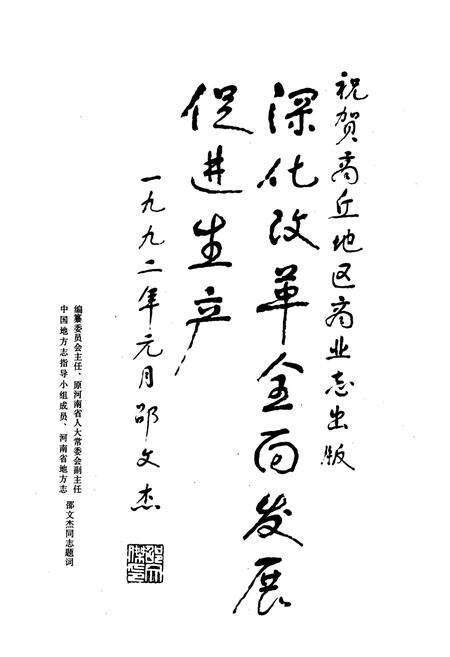 祝贺商丘地区商业志出版
深化改革全面发展
促进生产
一九九二年元月邵文杰
编纂委员会主任、原河南省人大常委会副主任
中国地方志指导小组成员、河南省地方志
邵文杰同志题词